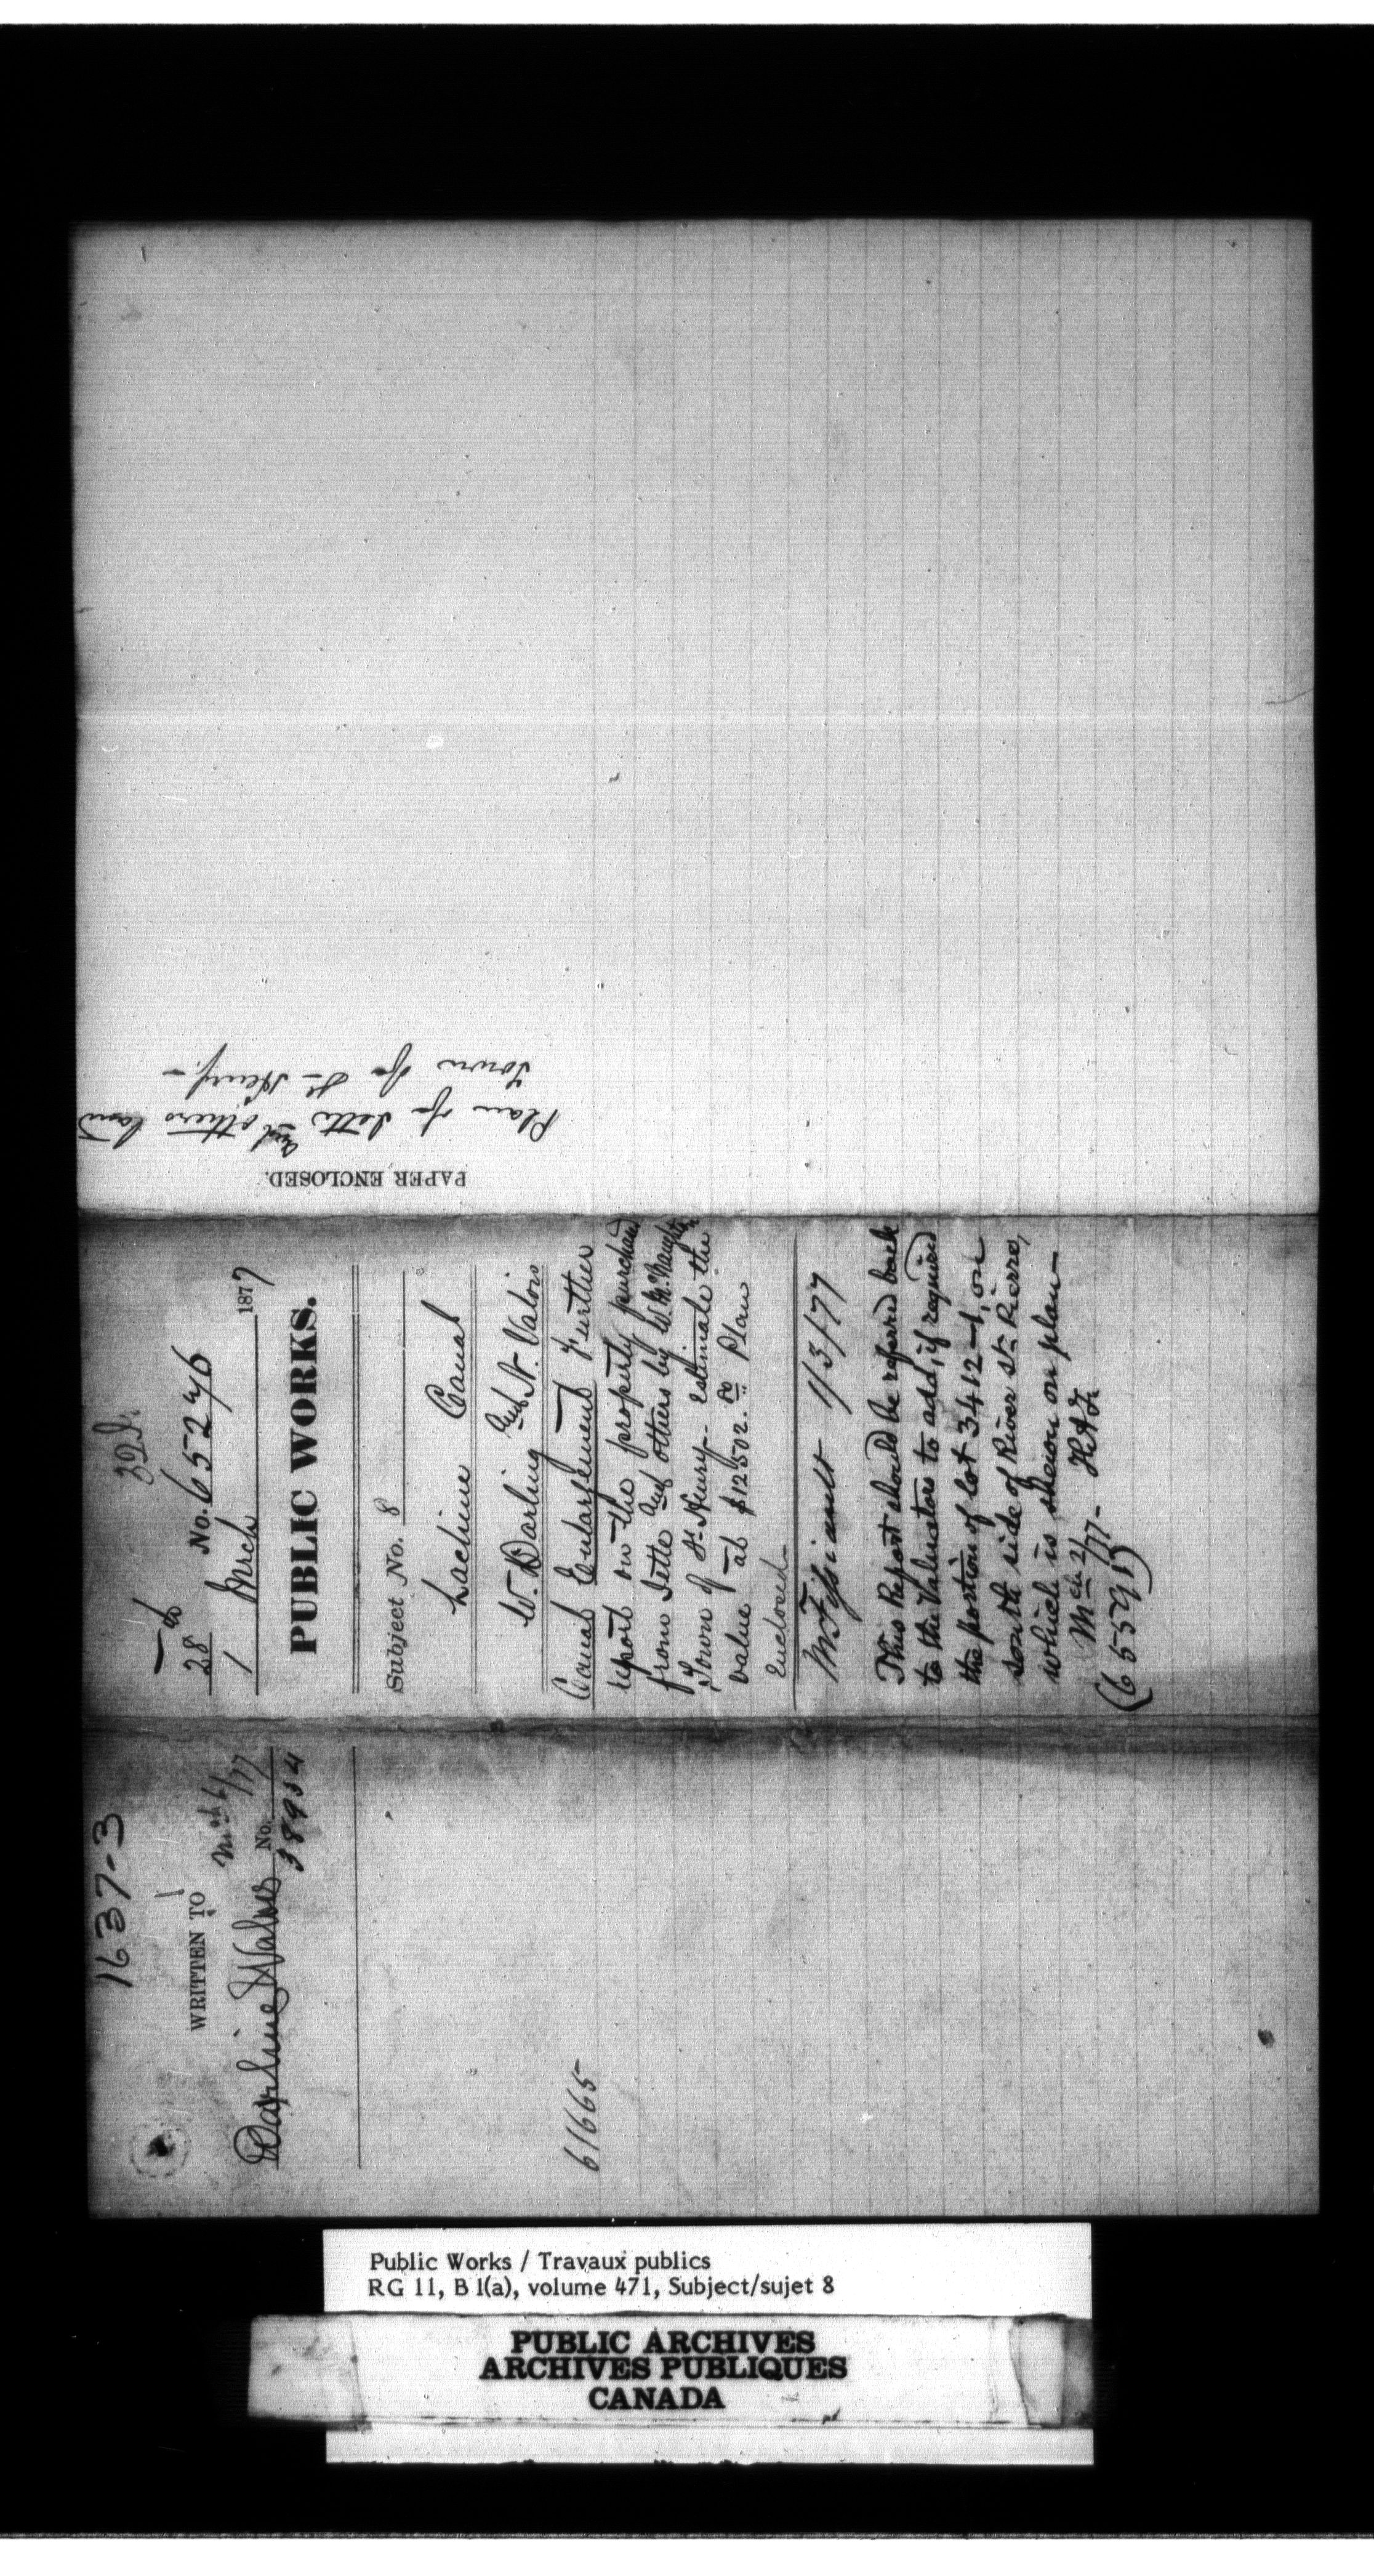 PAPER ENCLOSED.
Plan of Jette and others land
Town of St Henry. –
32 I.
28 No. 65246
1 Mrch 1877
PUBLIC WORKS.
Subject No. 8
Lachine Canal
W. Darling and N. Valois
Canal Enlargement Further
report on the property purchased
from Jette and others by W. McNaughton
Town of St. Henry.. Estimate the
value at $12502.00 Plan
Enclosed
Mr Fissiault 1/3/77
This Report should be referred back
to the Valuators to add, if required
the portion of lot 3412–1, on
south side of River St. Pierre,
which is shewn on plan –
Mch 2/77 –
(65591)
1637-3
WRITTEN TO
Mch 6/77
Darling & Valois No.
38954
61665
Public Works / Travaux publics
RG 11, B 1(a), volume 471, Subject/sujet 8
PUBLIC ARCHIVES
ARCHIVES PUBLIQUES
CANADA